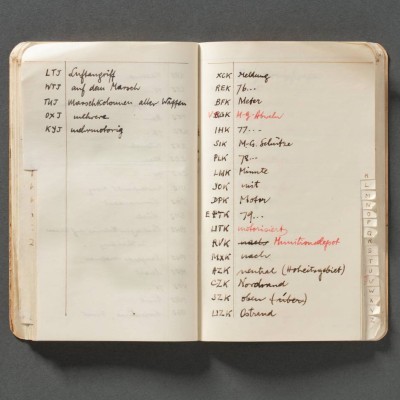 LTJ Luftangriff
WTJ auf dem Marsch
THJ Marschkolonnen aller Waffen
OXJ mehrere
KYJ mehrmotorig
XCK Meldung
REK 76...
BFK Meter
BGK
IHK 77...
SIK M-G. Schütze
PLK 78...
LWK Minute
JOK mit
DPK Motor
79...
UTK motorisiert
RVK nachts Munitionsdepot
MXK nach
AZK neutral (Hoheitsgebiet)
CZK Nordrand
JZK oben (über)
UZK Ostrand